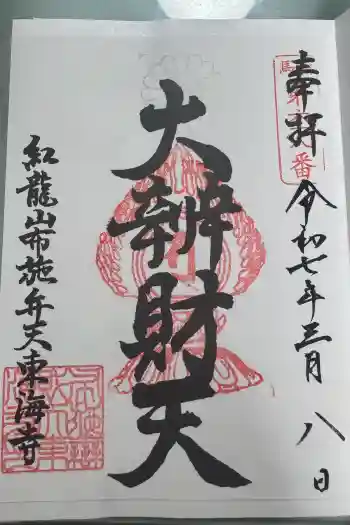 奉拝
令和七年三月八日
大辨財天
紅龍山布施弁天東海寺